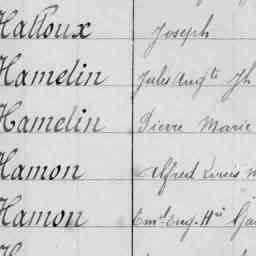 Halloux Joseph
Hamelin Jules Augte Jh
Hamelin Pierre Marie
Hamon Alfred Louis
Hamon Eml Eug. Hri